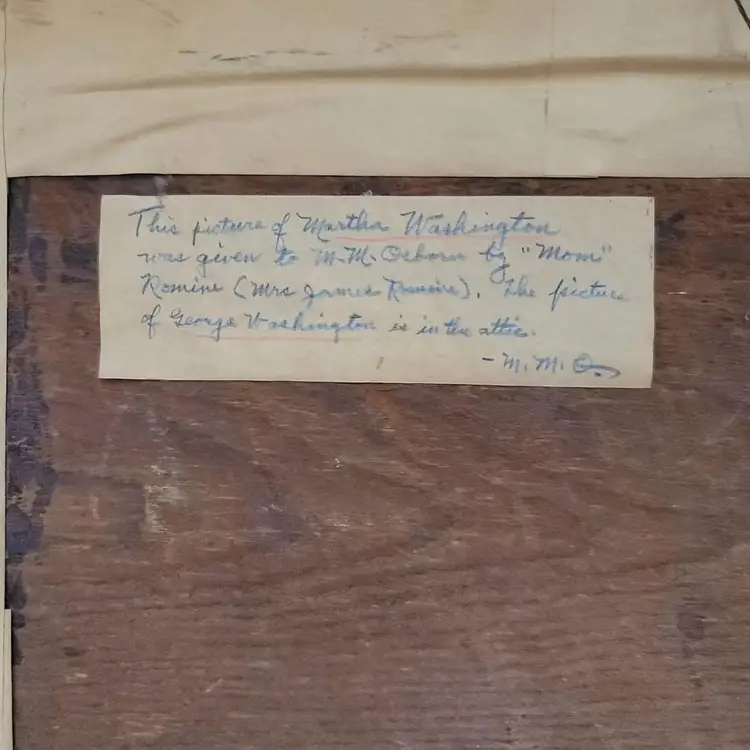 This picture of Martha Washington
was given to M. M. Osborn by "Mom"
Romine (Mrs James Romine). The picture
of George Washington is in the attic.
- M. M. O.